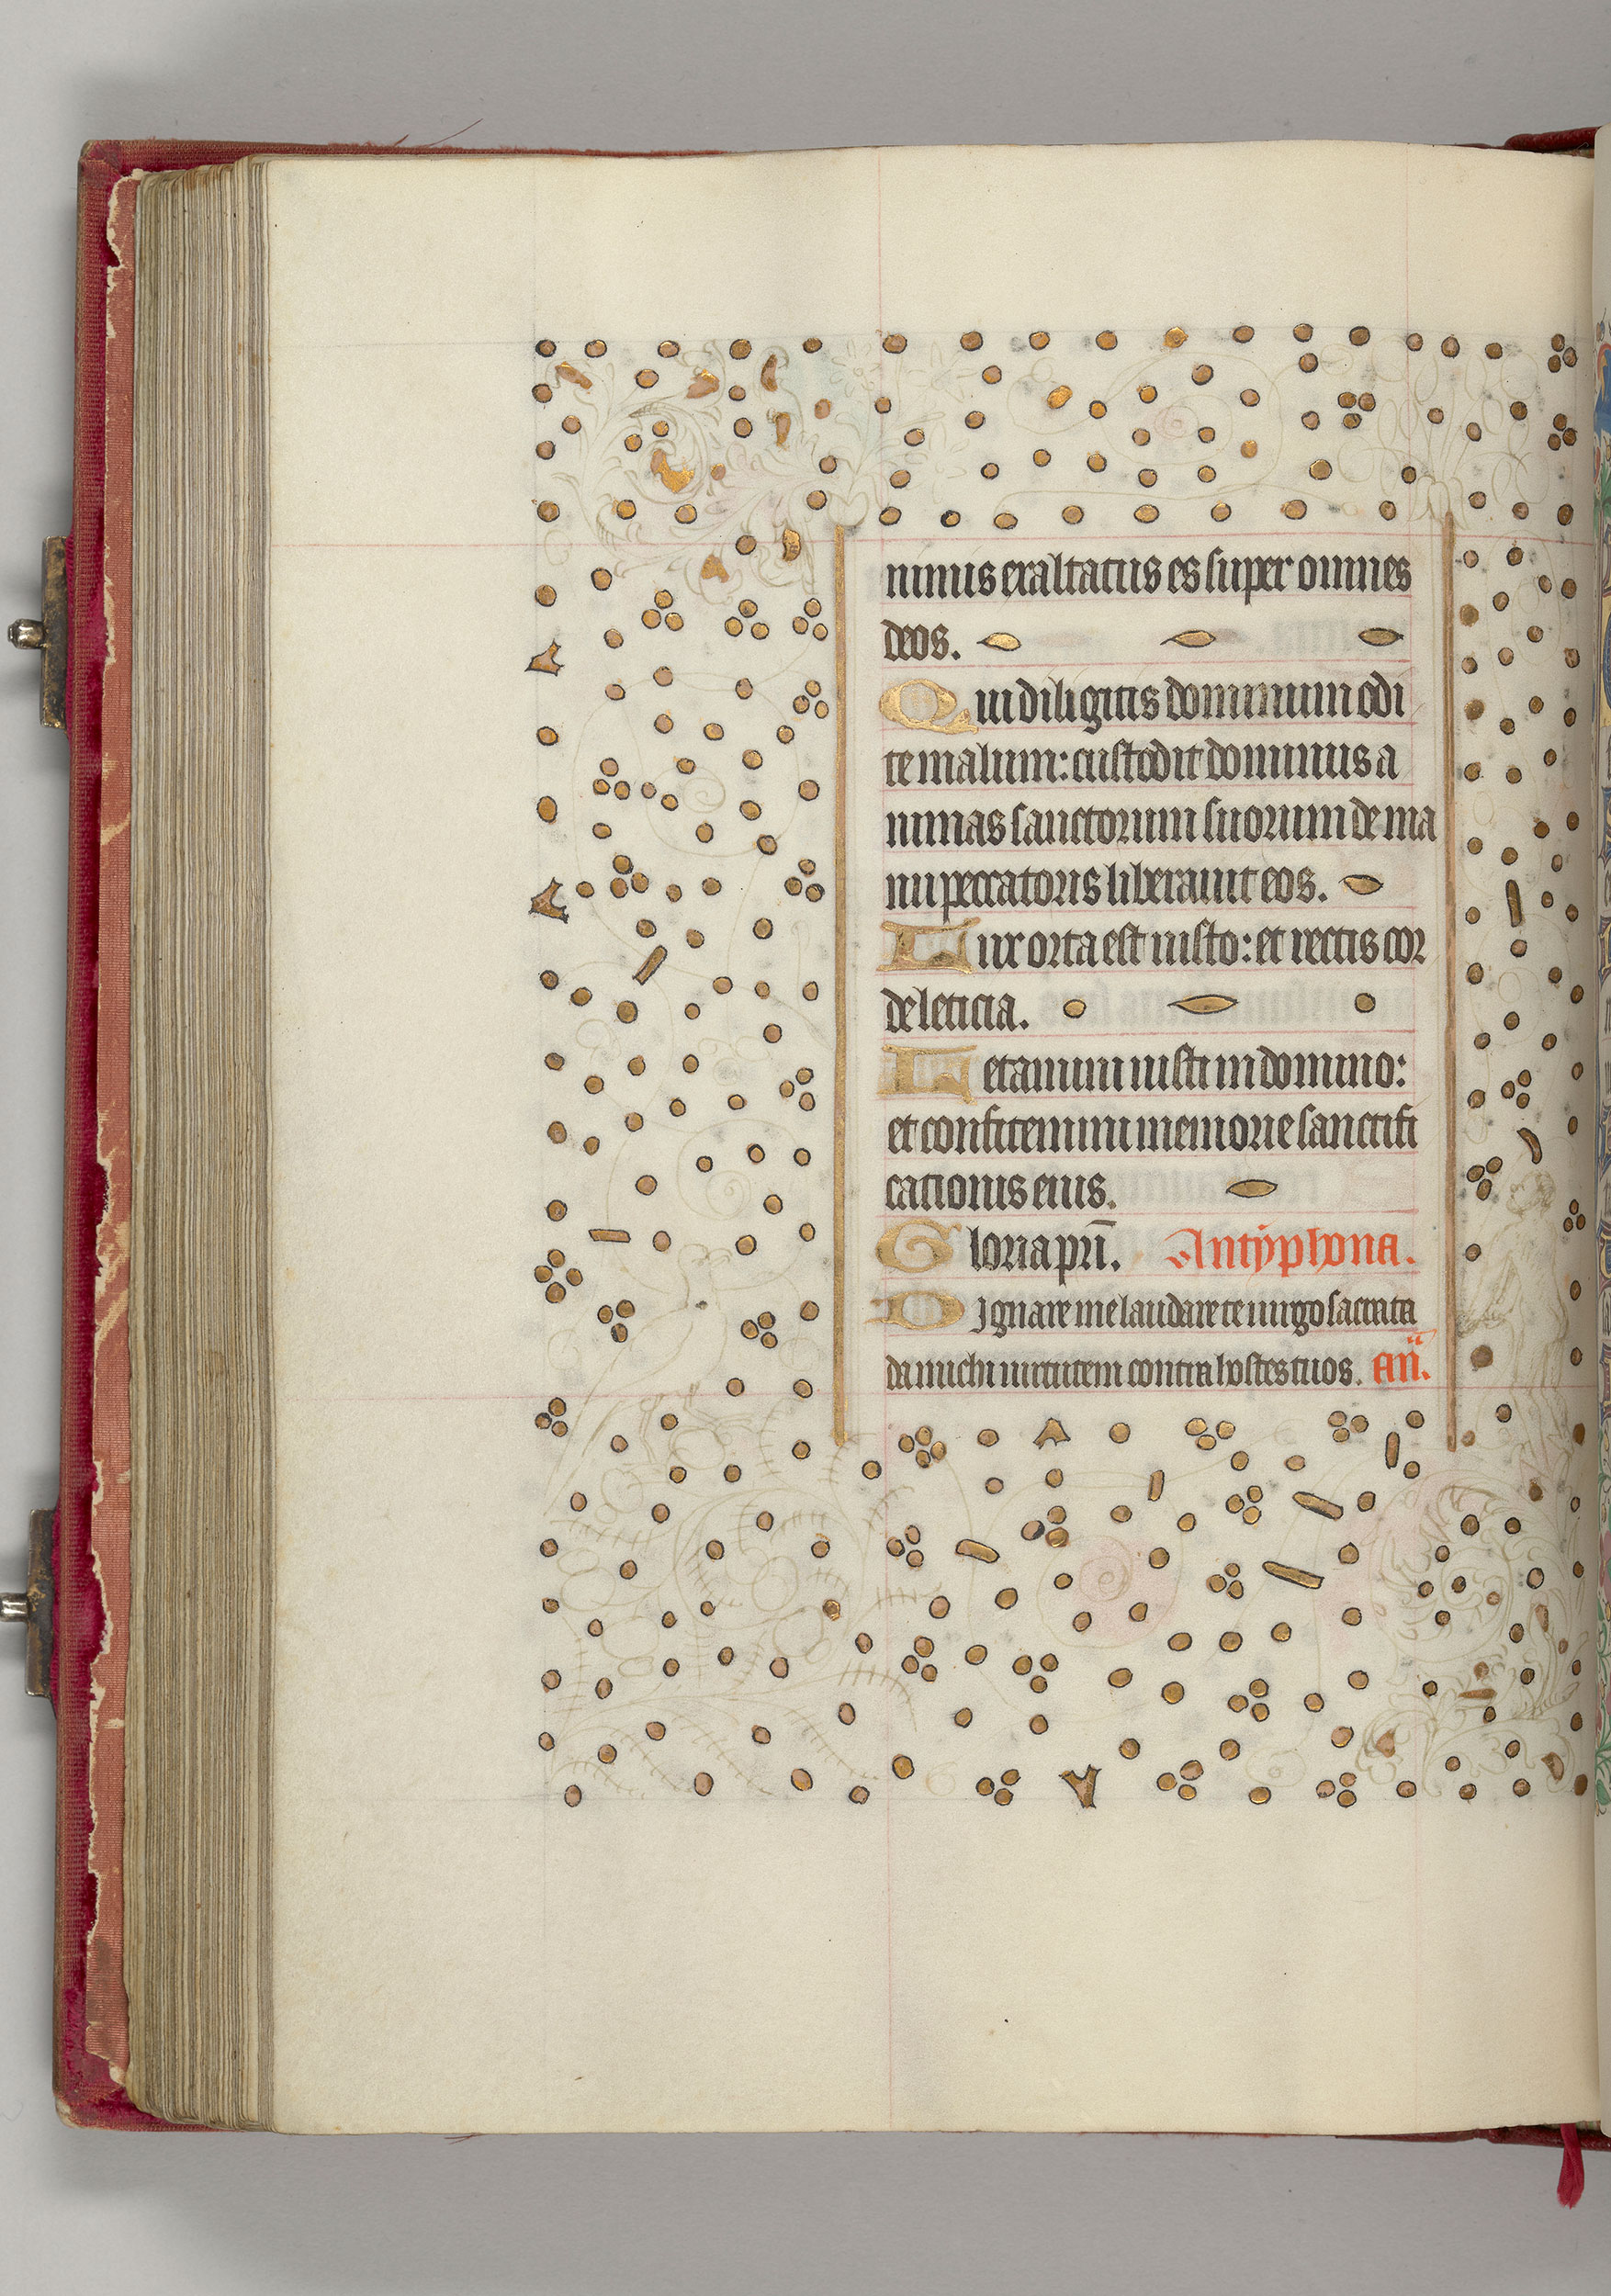 nimis exaltatus es super omnes
deos.
Qui diligitis dominum odi
te malum: custodit dominus a
nimas sanctorum suorum de ma
nu peccatoris liberauit eos.
Lux orta est iusto: et rectis cor
de leticia.
Letamini iusti in domino:
et confitemini memorie sanctifi
cationis eius.
Gloria pri̅. Antyphona.
Dignare me laudare te uirgo sacrata
da michi uirtutem contra hostes tuos. an̅.